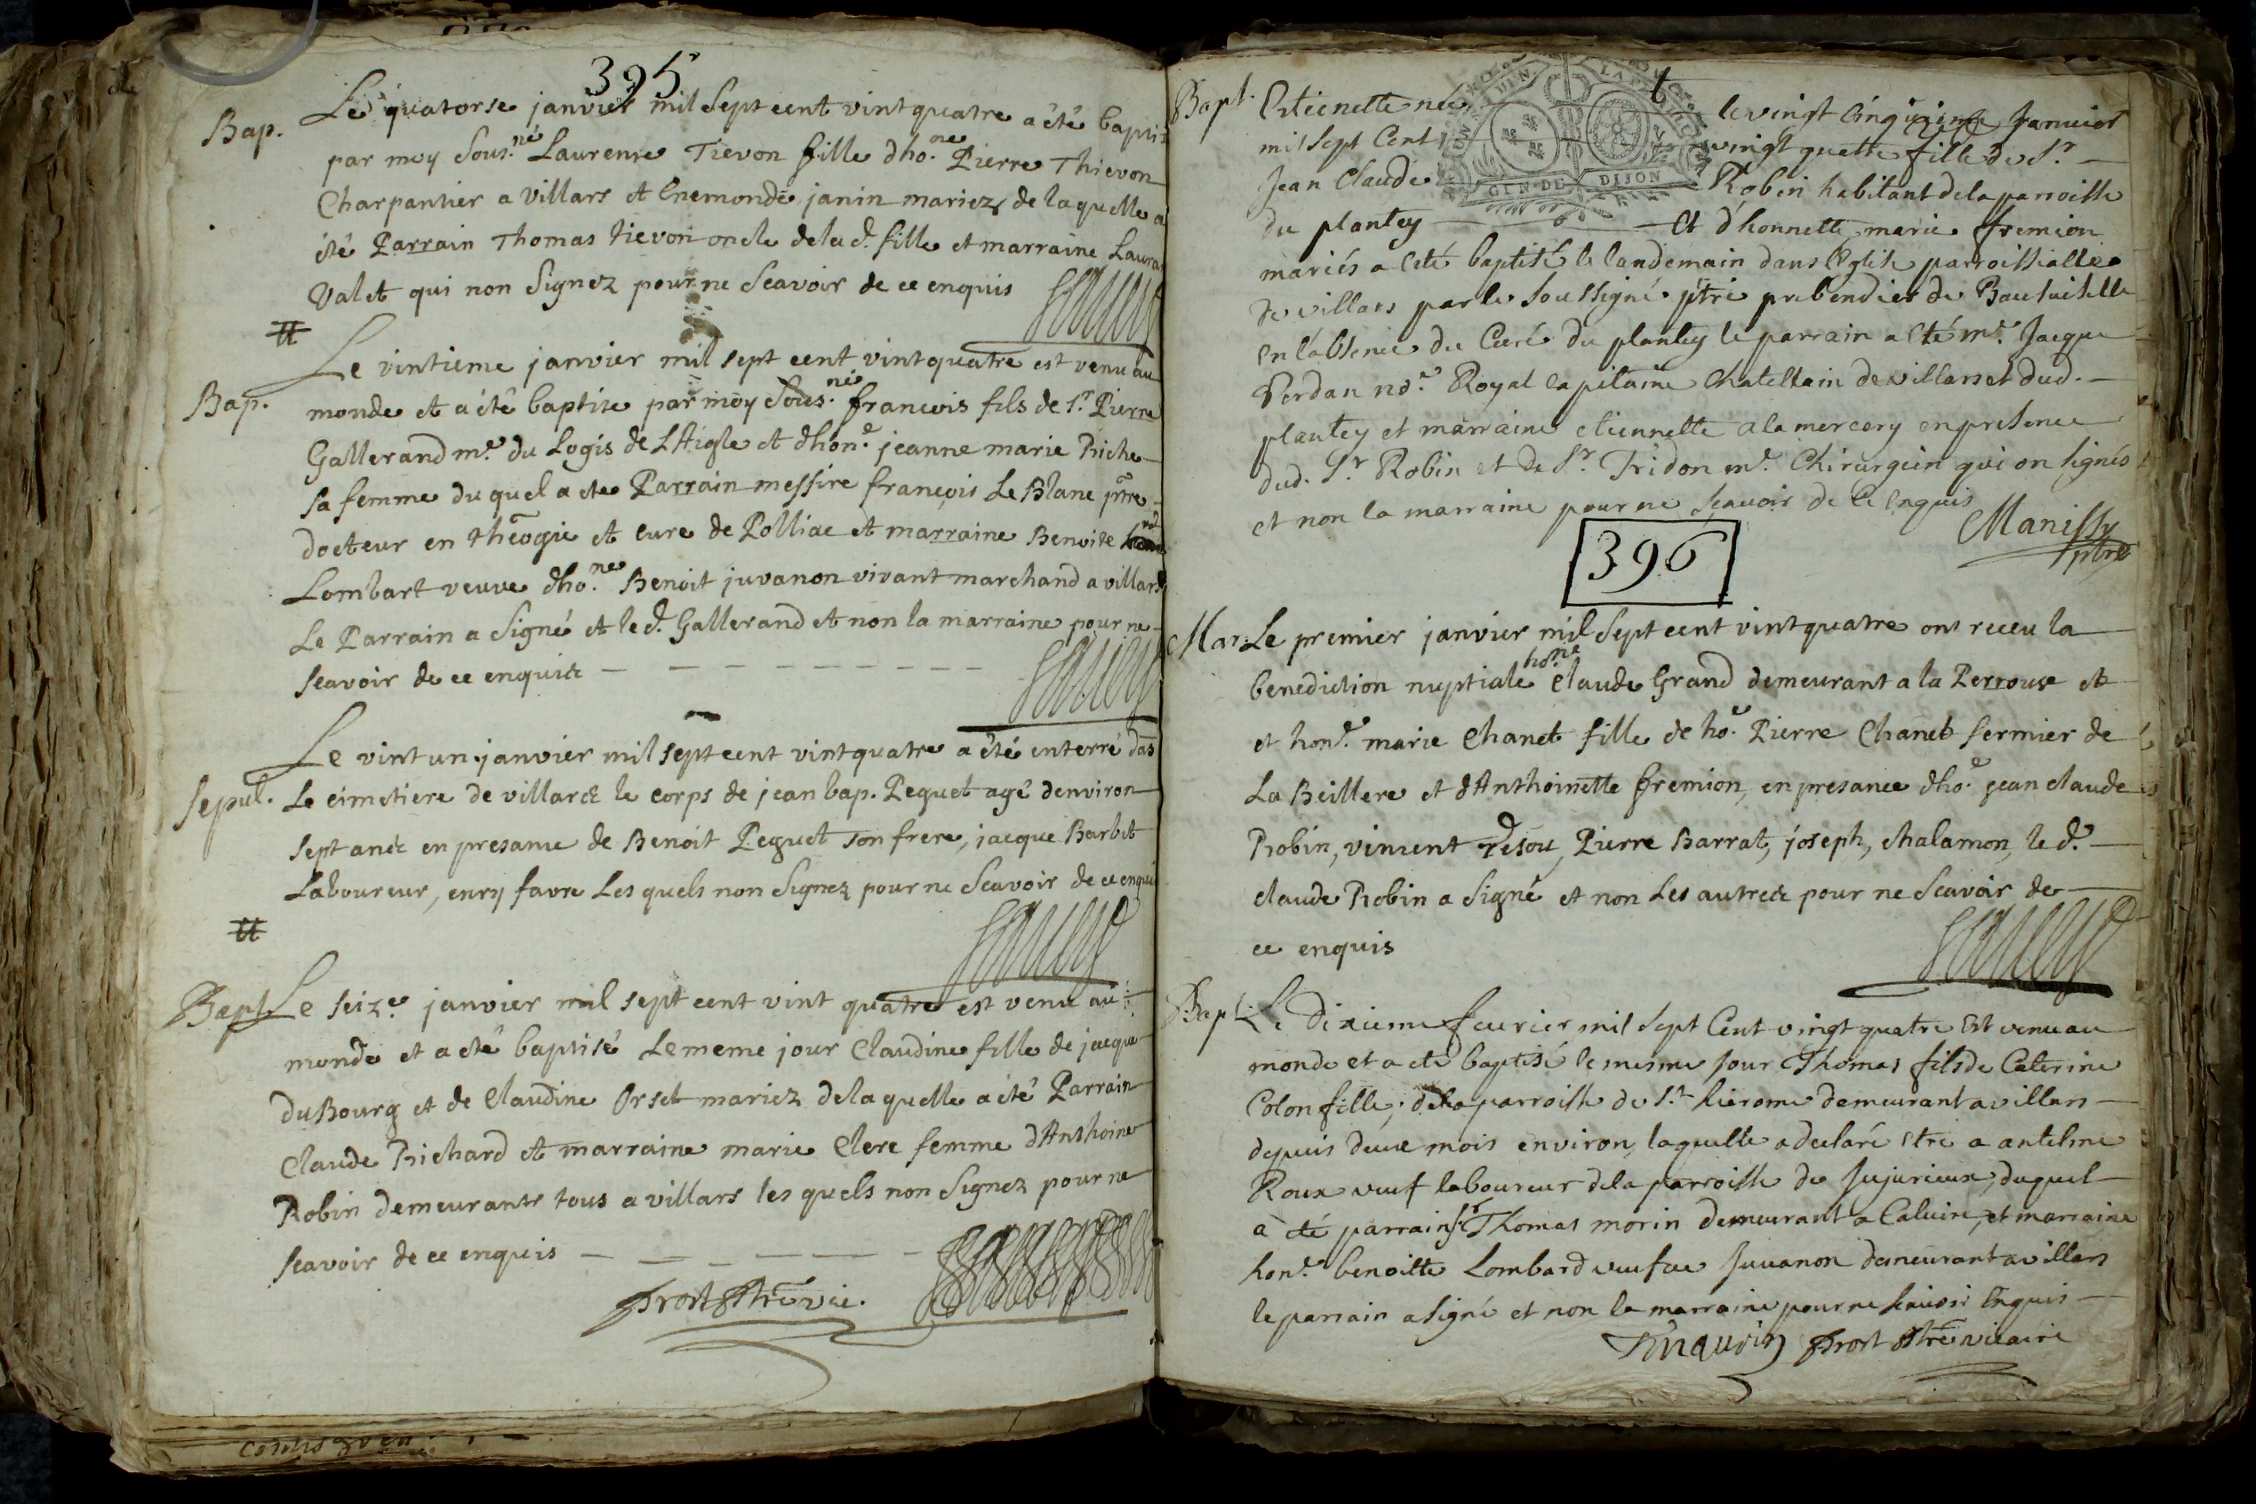 395
Bap.
Le quatorse janvier mil sept cent vint quatre a été bapti
par moy Sous.né Laurense Tievon fille dho.ne Pierre Thievon
Charpantier a villars et Enemonde janin mariez de laquelle a
été Parrain Thomas tievon oncle de la d. fille et marraine Laura
Valet qui non Signez pour ne Scavoir de ce enquis
Bap.
Le vintieme janvier mil sept cent vint quatre est venu au
monde et a été baptise par moy Sous.né françois fils de S.r Pierre
Gallerand m.e du Logis de L'Aigle et dhon.e jeanne marie Riche
sa femme du quel a ete Parrain messire françois Le Blanc ptre
docteur en theogie et cure de Polliac et marraine Benoite
Lombart veuve dho.ne Benoit juvanon vivant marchand a villars
Le Parrain a Signé et le d. Gallerand et non la marraine pour ne
scavoir de ce enquis
Sepul.
Le vint un janvier mil sept cent vint quatre a été enterré das
Le cimetiere de villars le corps de jean bap. Peguet agé denviron
sept ans en presance de Benoit Peguet son frere, jacque Barbet
Laboureur, enry favre Les quels non Signez pour ne Scavoir de ce enqui
Bapt.
Le seiz.e janvier mil sept cent vint quatre est venu au
monde et a été baptisé Le meme jour Claudine fille de jacque
du Bourg et de Claudine Orset mariez de la quelle a été Parrain
Claude Richard et marraine marie Clere femme d'Anthoine
Robin demeurants tous a villars les quels non Signez pour ne
scavoir de ce enquis
Prost Ptre vic.
GEN DE DIJON
Bapt.
Estienette née le vingt cinquieme Janvier
mil sept Cent vingt quattre fille de S.r
Jean Claude Robin habitant de la parroisse
du plantey Et d'honnette marie fremion
mariés a Eté baptisé le landemain dans l'Eglise parroissialle
de villars par le Soussigné ptre prebendier de
En l'absence du Curé du plantey le parrain a Eté m.e Jacque
Perdan no.e Royal capitaine Chatellain de villars et dud.
plantey et marraine etiennette a la mercery en presence
dud. S.r Robin et de S.r Tridon m.e Chirurgien qui on signés
et non la marraine pour ne sçavoir de ce Enquis
Manissy
ptre
396
Mar.
Le premier janvier mil sept cent vint quatre ont receu la
benediction nuptiale hon.e Claude Grand demeurant a la Perrouse et
et hon.e marie Chanet fille de ho.e Pierre Chanet fermier de
La Beillere et d'Anthoinette fremion, en presance dho.e jean claude
Robin, vincent Pierre Barrat, joseph, chalamon, le d.
claude Robin a Signé et non Les autres pour ne Scavoir de
ce enquis
Bapt.
Le Dixieme feurier mil sept Cent vingt quatre Est venu au
monde et a eté baptisé le mesme jour Thomas fils de Caterine
Colon fille, de la parroisse de S.t hierome demeurant a villars
depuis deux mois environ, laquelle a declaré Etre a antelme
Roux veuf laboureur de la parroisse de Jujurieux, duquel
a été parrain S.r Thomas morin demeurant a Caluire, et marraine
hon.e benoitte Lombard veufve Juuanon demeurant a villars
le parrain a signé et non la marraine pour ne scauoir Enquis
Prost Ptre vicaire